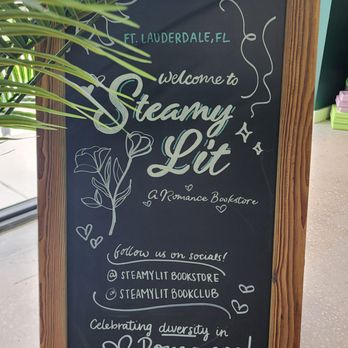 FT. LAUDERDALE, FL
welcome to
Steamy
Lit
A Romance Bookstore
follow us on socials!
@ STEAMYLIT BOOKSTORE
@ STEAMYLIT BOOKCLUB
Celebrating diversity in
Romance!